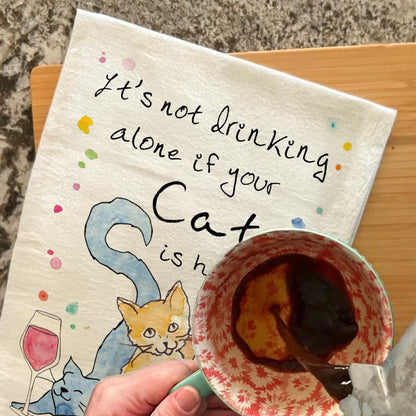 It's not drinking
alone if your
Cat
is